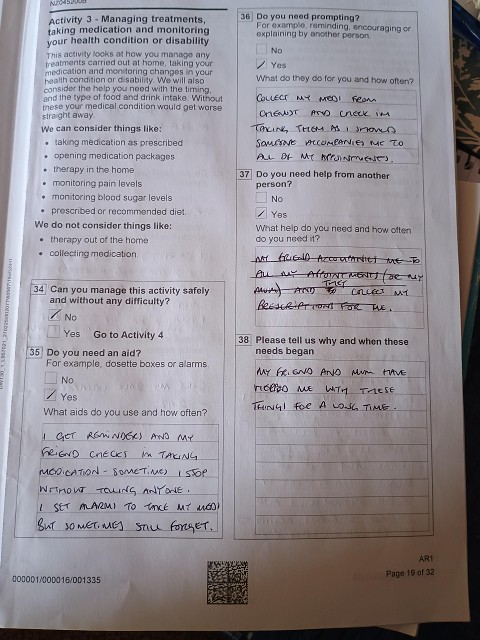 NZ045200B
Activity 3 - Managing treatments,
taking medication and monitoring
your health condition or disability
This activity looks at how you manage any
treatments carried out at home, taking your
medication and monitoring changes in your
health condition or disability. We will also
consider the help you need with the timing,
and the type of food and drink intake. Without
these your medical condition would get worse
straight away.
We can consider things like:
• taking medication as prescribed
• opening medication packages
• therapy in the home
• monitoring pain levels
• monitoring blood sugar levels
• prescribed or recommended diet.
We do not consider things like:
• therapy out of the home
• collecting medication.
34 Can you manage this activity safely
and without any difficulty?
✓ No
Yes Go to Activity 4
35 Do you need an aid?
For example, dosette boxes or alarms
No
✓ Yes
What aids do you use and how often?
I GET REMINDERS AND MY
FRIEND CHECKS IM TAKING
MEDICATION - SOMETIMES I STOP
WITHOUT TELLING ANYONE.
I SET ALARMS TO TAKE MY MEDS
BUT SOMETIMES STILL FORGET.
36 Do you need prompting?
For example, reminding, encouraging or
explaining by another person.
No
✓ Yes
What do they do for you and how often?
COLLECT MY MEDS FROM
CHEMIST AND CHECK IM
TAKING THEM AS I SHOULD
SOMEONE ACCOMPANIES ME TO
ALL OF MY APPOINTMENTS.
37 Do you need help from another
person?
No
✓ Yes
What help do you need and how often
do you need it?
MY FRIEND ACCOMPANIES ME TO
ALL MY APPOINTMENTS (OR MY
MUM) AND THEY COLLECT MY
PRESCRIPTIONS FOR ME.
38 Please tell us why and when these
needs began
MY FRIEND AND MUM HAVE
HELPED ME WITH THESE
THINGS FOR A LONG TIME.
000001/000016/001335
AR1
Page 19 of 32